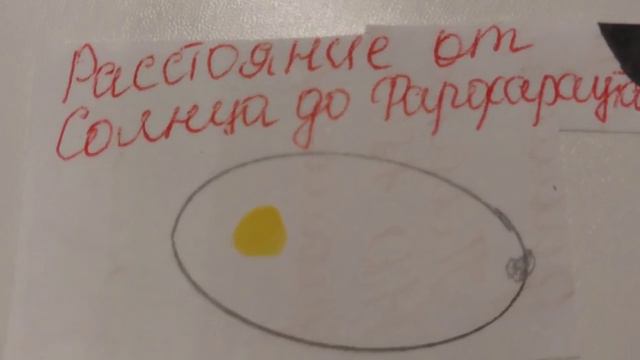 Расстояние от
Солнца до Фарфараута